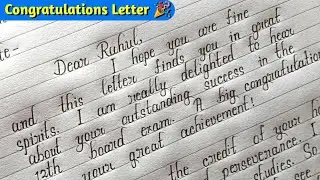 Congratulations Letter 🎉
te:-
Dear Rahul,
I hope you are fine
and this letter finds you in great
spirits. I am really delighted to hear
about your outstanding success in the
12th board exam. A big congratulation
your great achievement!
the credit of your h
d perseverance. I
studies. So